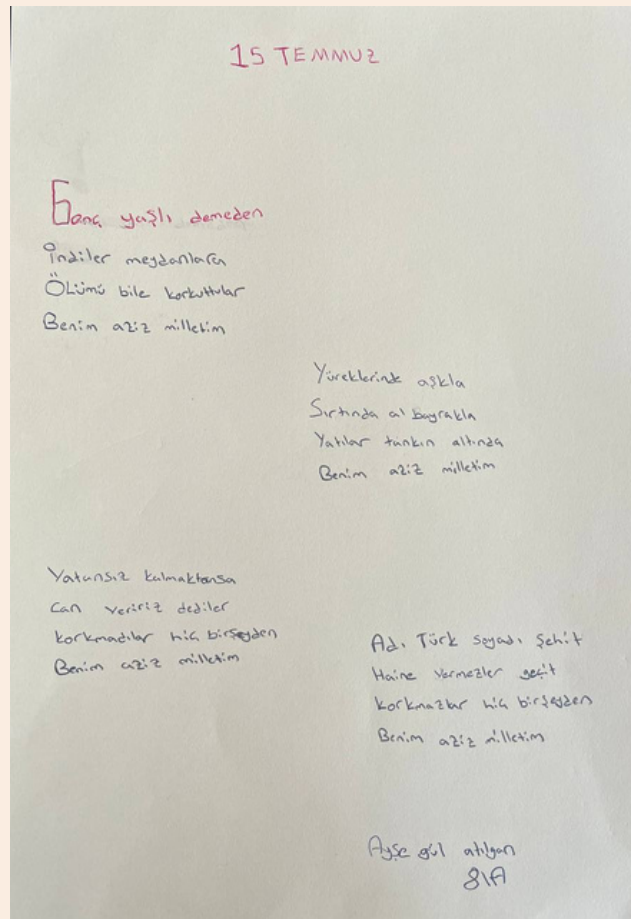 15 TEMMUZ
Genç yaşlı demeden
İndiler meydanlara
Ölümü bile korkuttular
Benim aziz milletim
Yüreklerinde aşkla
Sırtında al bayrakla
Yatılar tankın altında
Benim aziz milletim
Vatansız kalmaktansa
Can veririz dediler
korkmadılar hiç birşeyden
Benim aziz milletim
Adı Türk soyadı Şehit
Haine vermezler geçit
korkmazlar hiç birşeyden
Benim aziz milletim
Ayşe gül atılgan
8\A